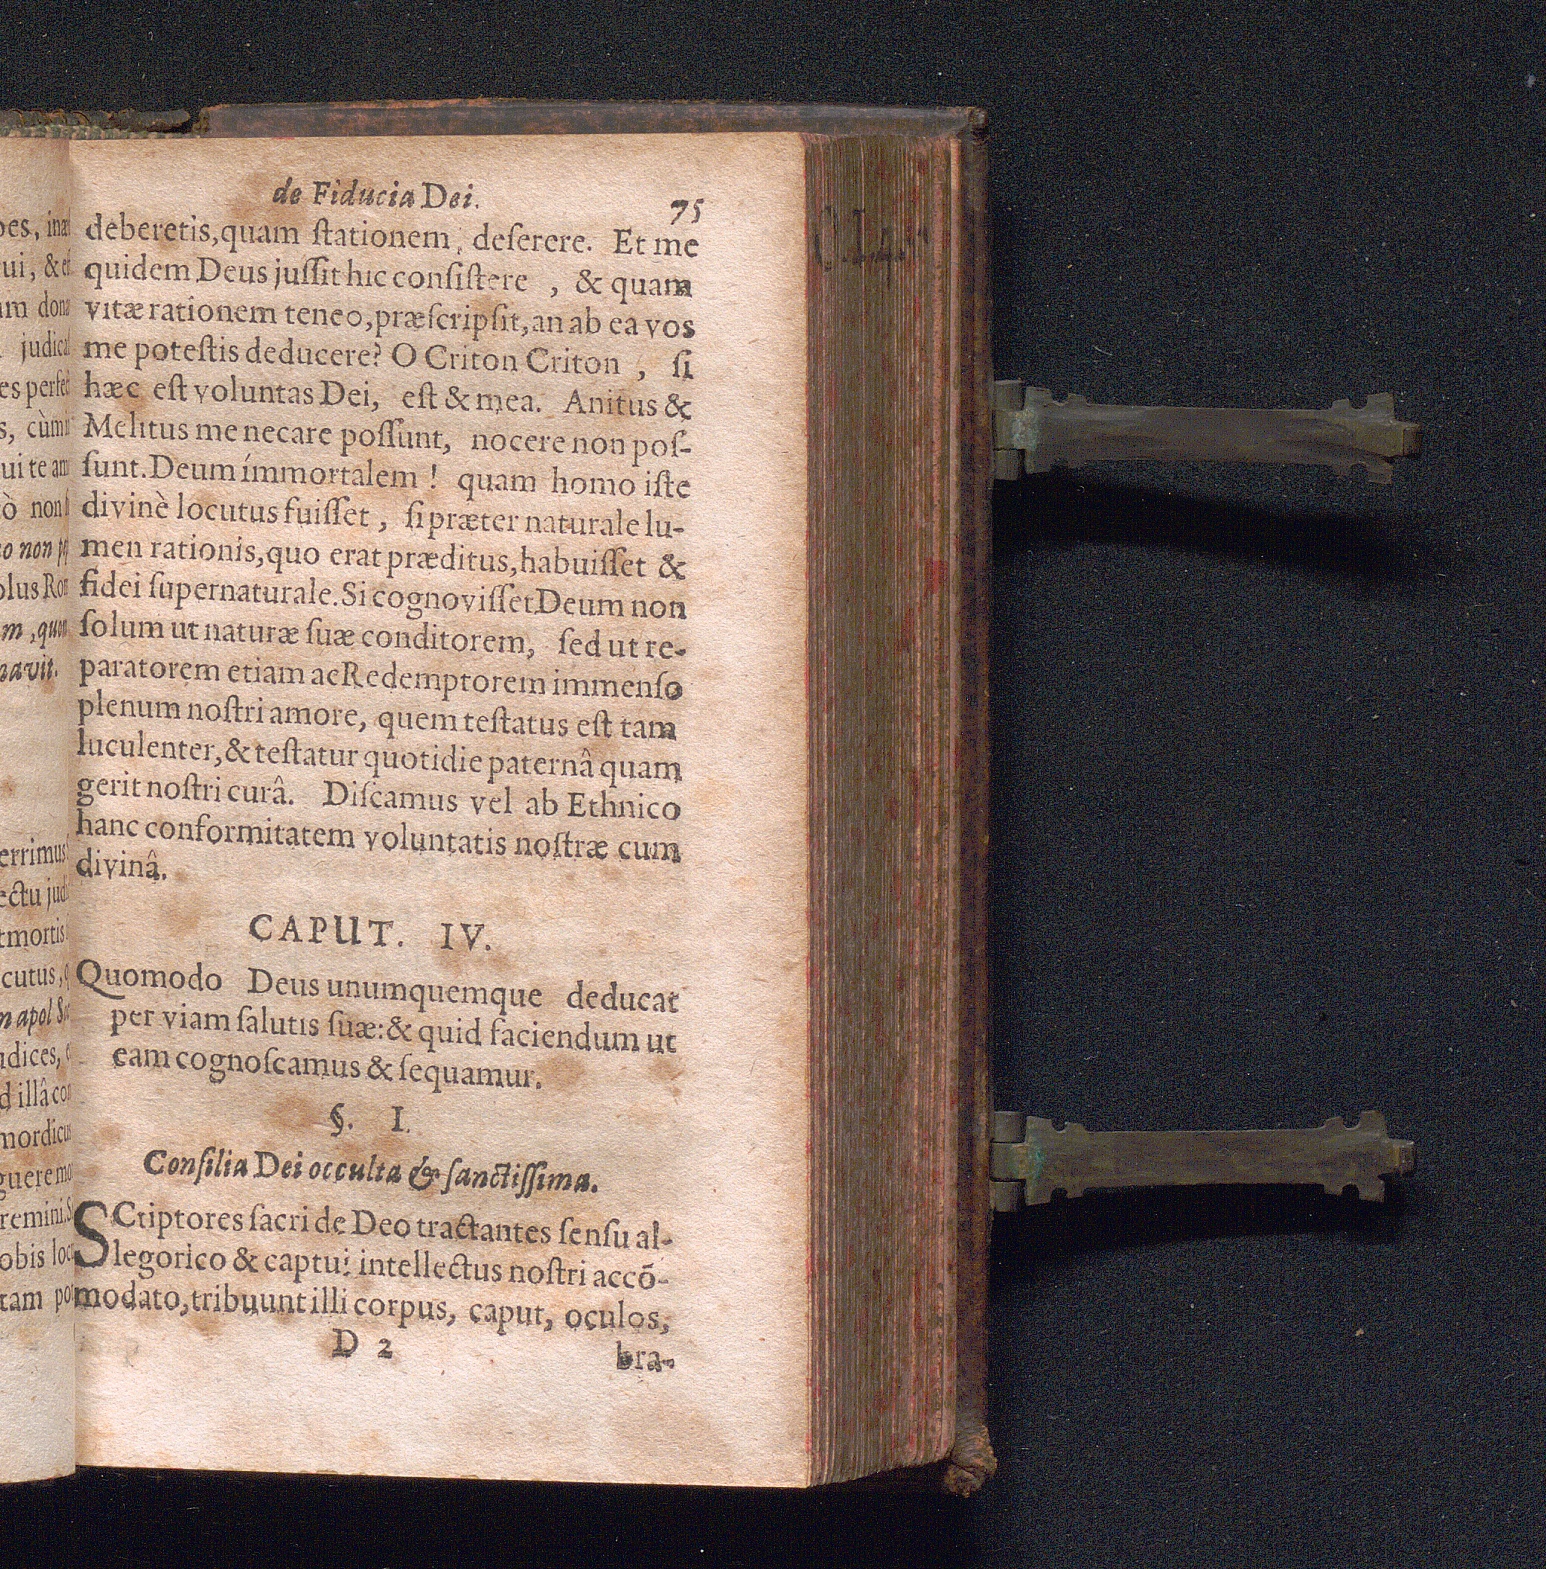 de Fiducia Dei. 75
deberetis, quam ſtationem, deſerere. Et me
quidem Deus juſſit hic conſiſtere , & quam
vitæ rationem teneo, præſcripſit, an ab ea vos
me poteſtis deducere? O Criton Criton , ſi
hæc eſt voluntas Dei, eſt & mea. Anitus &
Melitus me necare poſſunt, nocere non poſ-
ſunt. Deum ímmortalem ! quam homo iſte
divinè locutus fuiſſet , ſi præter naturale lu-
men rationis, quo erat præditus, habuiſſet &
fidei ſupernaturale. Si cognoviſſet Deum non
ſolum ut naturæ ſuæ conditorem, ſed ut re-
paratorem etiam ac Redemptorem immenſo
plenum noſtri amore, quem teſtatus eſt tam
luculenter, & teſtatur quotidie paternâ quam
gerit noſtri curâ. Diſcamus vel ab Ethnico
hanc conformitatem voluntatis noſtræ cum
divinâ.
CAPUT. IV.
Quomodo Deus unumquemque deducat
per viam ſalutis ſuæ: & quid faciendum ut
eam cognoſcamus & ſequamur.
§. I.
Conſilia Dei occulta & ſanctiſſima.
SCtiptores ſacri de Deo tractantes ſenſu al-
legorico & captui intellectus noſtri accō-
modato, tribuunt illi corpus, caput, oculos,
D 2 bra-